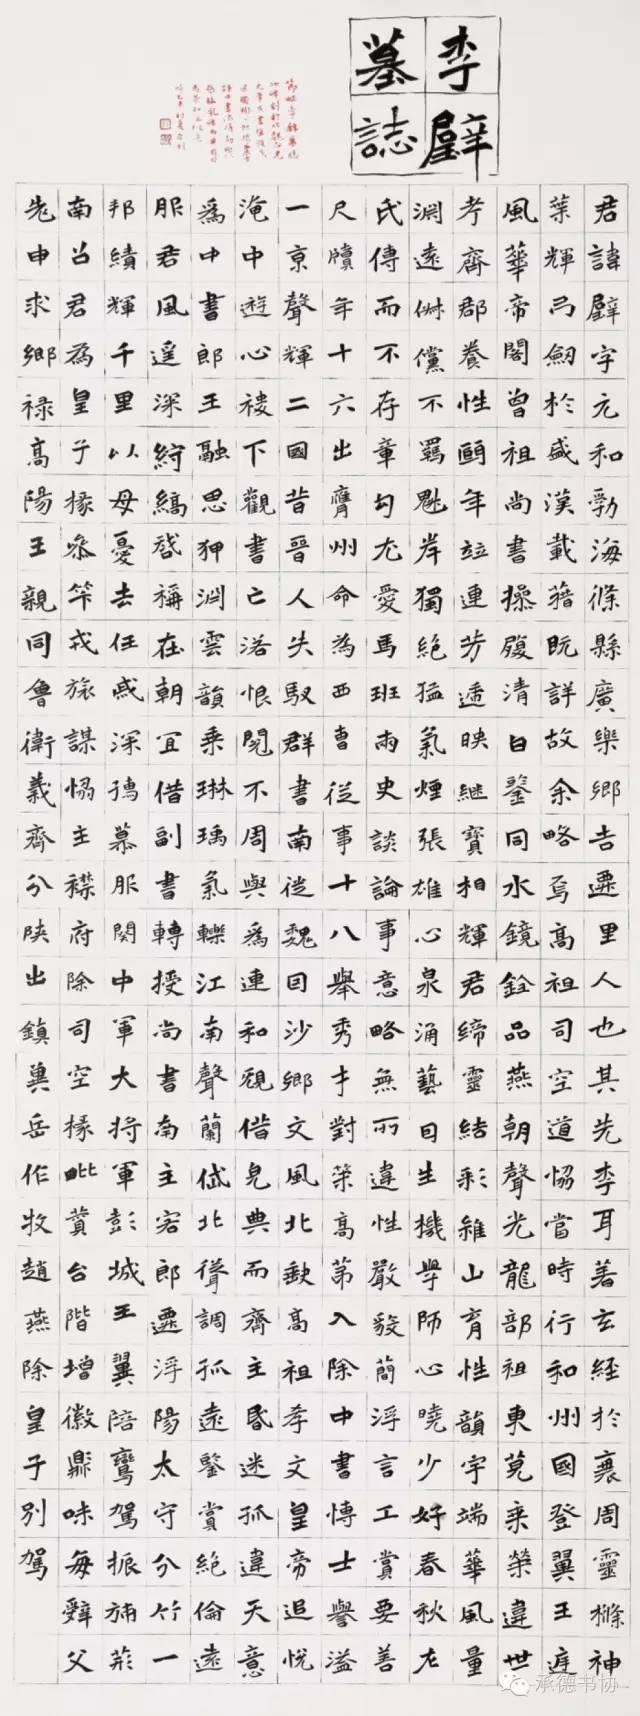 李璧
墓誌
君諱璧字元和勃海條縣廣樂鄉吉遷里人也其先李耳著玄經於衰周靈櫾神
葉輝弓劒於盛漢載藉旣詳故余略焉高祖司空道恊當時行和州國登翼王庭
風華帝閣曾祖尚書操履清白鑒同水鏡銓品燕朝聲光龍部祖東莞乘榮違世
考齊郡養性頤年竝連芳遞映繼寶相輝君締靈結彩維山育性韻宇端華風量
淵遠俶儻不羈魁岸獨絕猛氣煙張雄心泉涌藝因生機學師心曉少好春秋左
氏傳而不存章句尤愛馬班兩史談論事意略無所違性嚴毅簡浮言工賞要善
尺牘年十六出膺州命為西曹從事十八舉秀才對策高第入除中書博士譽溢
一京聲輝二國昔晉人失馭群書南徙魏因沙鄉文風北缺高祖孝文皇帝追悅
淹中遊心稷下觀書亡落恨閱不周與爲連和規借完典而齊主昏迷孤違天意
爲中書郎王融思狎淵雲韻乘琳瑀氣轢江南聲蘭岱北聳調孤遠鑒賞絕倫遠
服君風遥深紵縞啓稱在朝宜借副書轉授尚書南主客郎遷浮陽太守分竹一
邦績輝千里以母憂去任慼深孺慕服闋中軍大將軍彭城王翼陪鸞駕振旆荊
南召君為皇子掾參竿戎旅謀恊主襟府除司空掾毗賛台階增徽鼎味每辭父
老申求鄉祿高陽王親同魯衛義齊分陝出鎮冀岳作牧趙燕除皇子別駕
承德书协